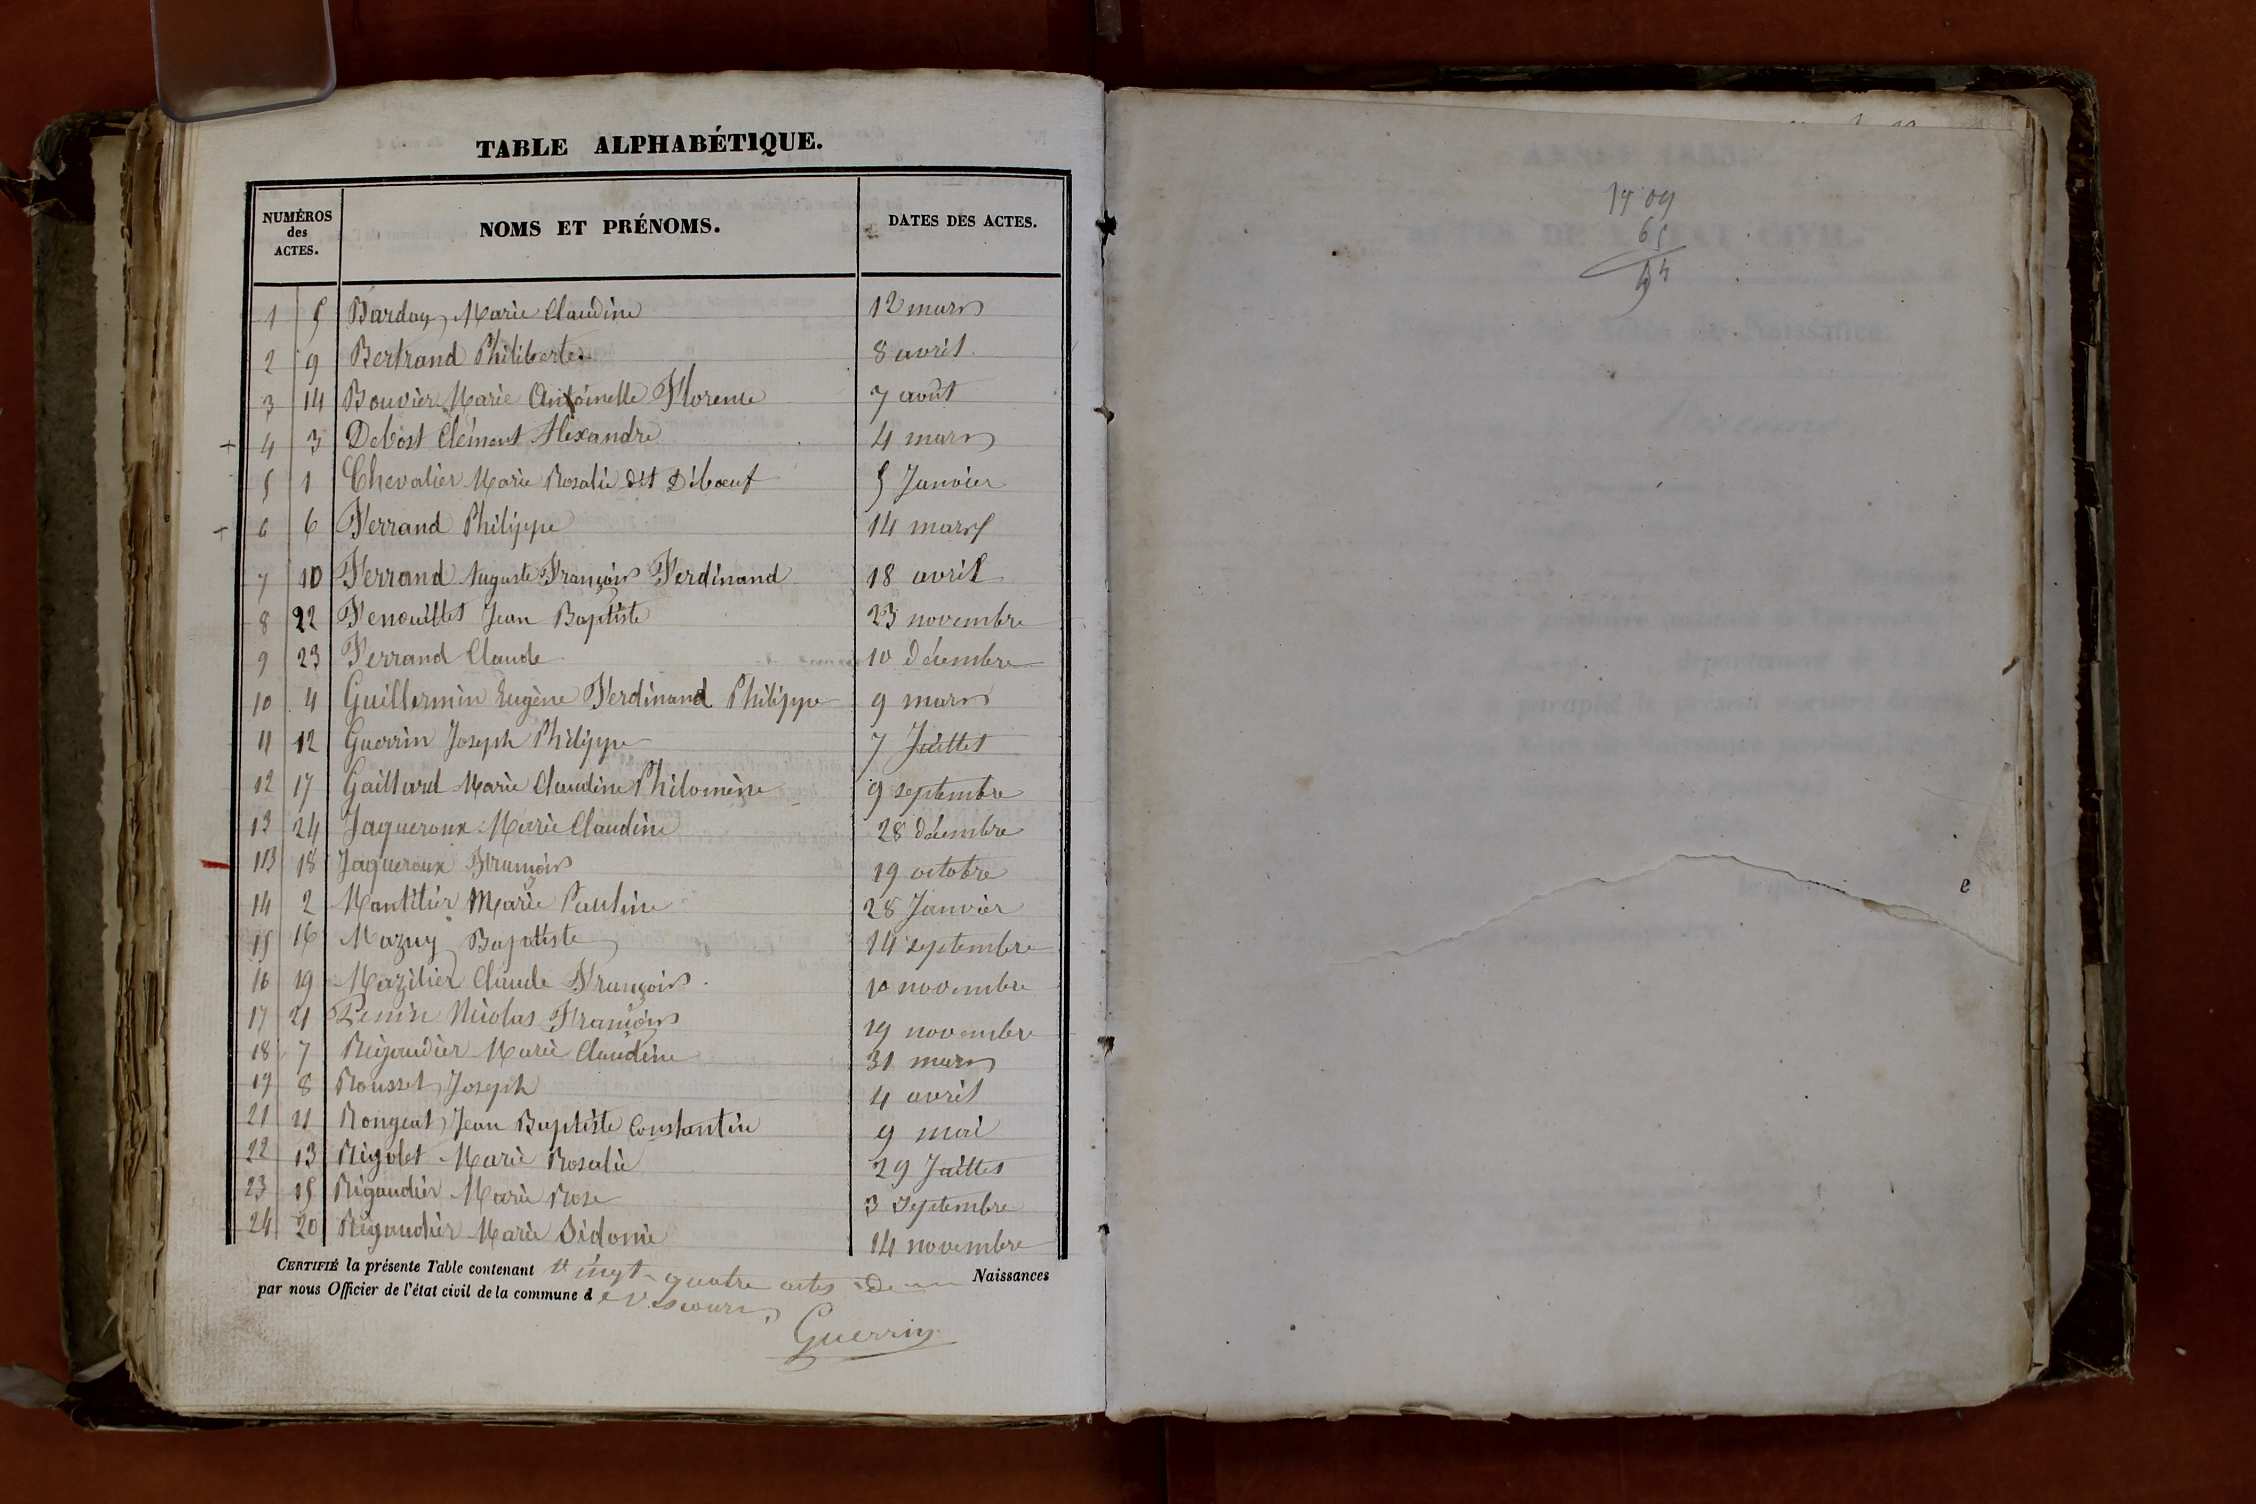 TABLE ALPHABÉTIQUE.
NUMÉROS des ACTES. NOMS ET PRÉNOMS. DATES DES ACTES.
1 5 Barday Marie Claudine 12 mars
2 9 Bertrand Philiberte 8 avril
3 14 Bouvier Marie Antoinette Florence 7 août
4 3 Debost Clément Alexandre 4 mars
5 1 Chevalier Marie Rosalie dit Diboeuf 5 Janvier
6 6 Ferrand Philippe 14 mars
7 10 Ferrand Auguste François Ferdinand 18 avril
8 22 Fenouillet Jean Baptiste 23 novembre
9 23 Ferrand Claude 10 décembre
10 4 Guillermin Eugène Ferdinand Philippe 9 mars
11 12 Guerrin Joseph Philippe 7 Juillet
12 17 Gaillard Marie Claudine Philomène 9 septembre
13 24 Jaqueroux Marie Claudine 28 décembre
18 Jaqueroux François 19 octobre
14 2 Mantilier Marie Pauline 28 Janvier
15 16 Mazuy Baptiste 14 septembre
16 19 Mazilier Claude François 10 novembre
17 21 Penin Nicolas François 19 novembre
18 7 Rigaudier Marie Claudine 31 mars
19 8 Rousset Joseph 4 avril
21 11 Rongeat Jean Baptiste Constantin 9 mai
22 13 Rigolet Marie Rosalie 29 Juillet
23 15 Rigaudier Marie Rose 3 Septembre
24 20 Rigaudier Marie Sidonie 14 novembre
CERTIFIÉ la présente Table contenant Vingt-quatre actes de Naissances
par nous Officier de l'état civil de la commune de
Guerrin
65
e